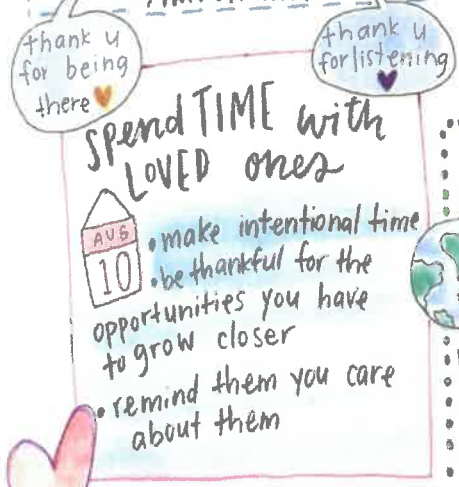 thank u
for being
there
thank u
for listening
spend TIME with
LOVED ones
AUG
10
• make intentional time
• be thankful for the
opportunities you have
to grow closer
• remind them you care
about them